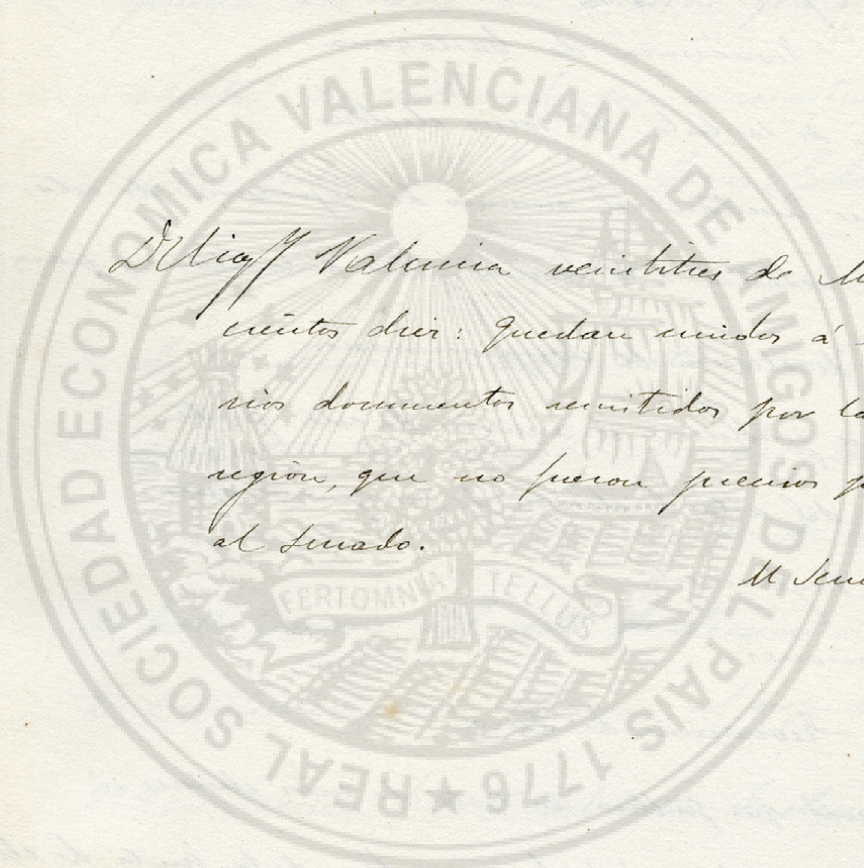 REAL SOCIEDAD ECONOMICA VALENCIANA DE AMIGOS DEL PAIS 1776
Valencia veintitres de
cientos diez: Quedan unidos á
rios documentos remitidos por la
región, que no fueron precisos
al Senado.
FERTOMNIA TELLUS